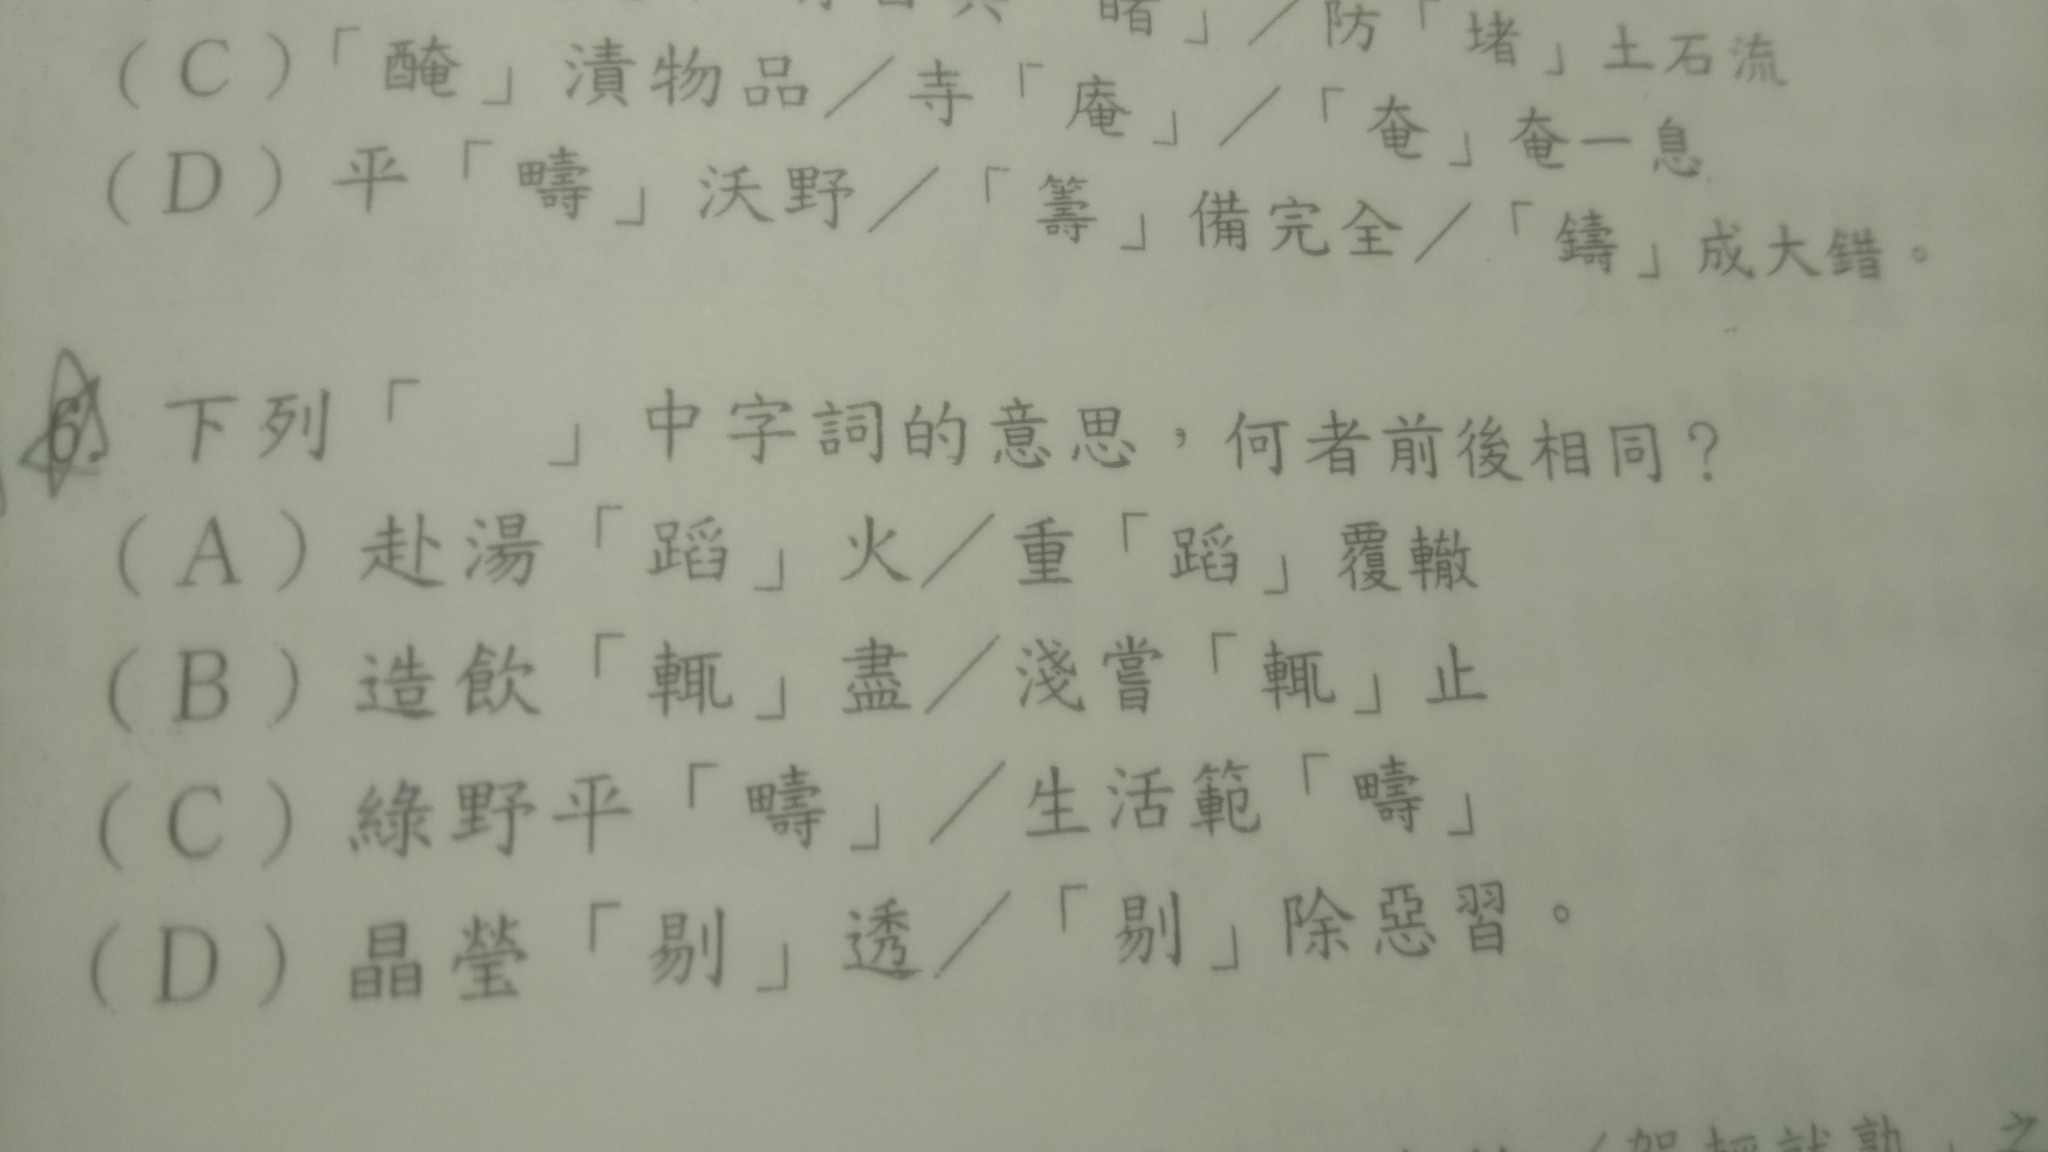 睹」/防「堵」土石流
(C)「醃」漬物品/寺「庵」/「奄」奄一息
(D)平「疇」沃野/「籌」備完全/「鑄」成大錯。
6. 下列「　」中字詞的意思,何者前後相同?
(A)赴湯「蹈」火/重「蹈」覆轍
(B)造飲「輒」盡/淺嘗「輒」止
(C)綠野平「疇」/生活範「疇」
(D)晶瑩「剔」透/「剔」除惡習。
/駕輕就熟」之